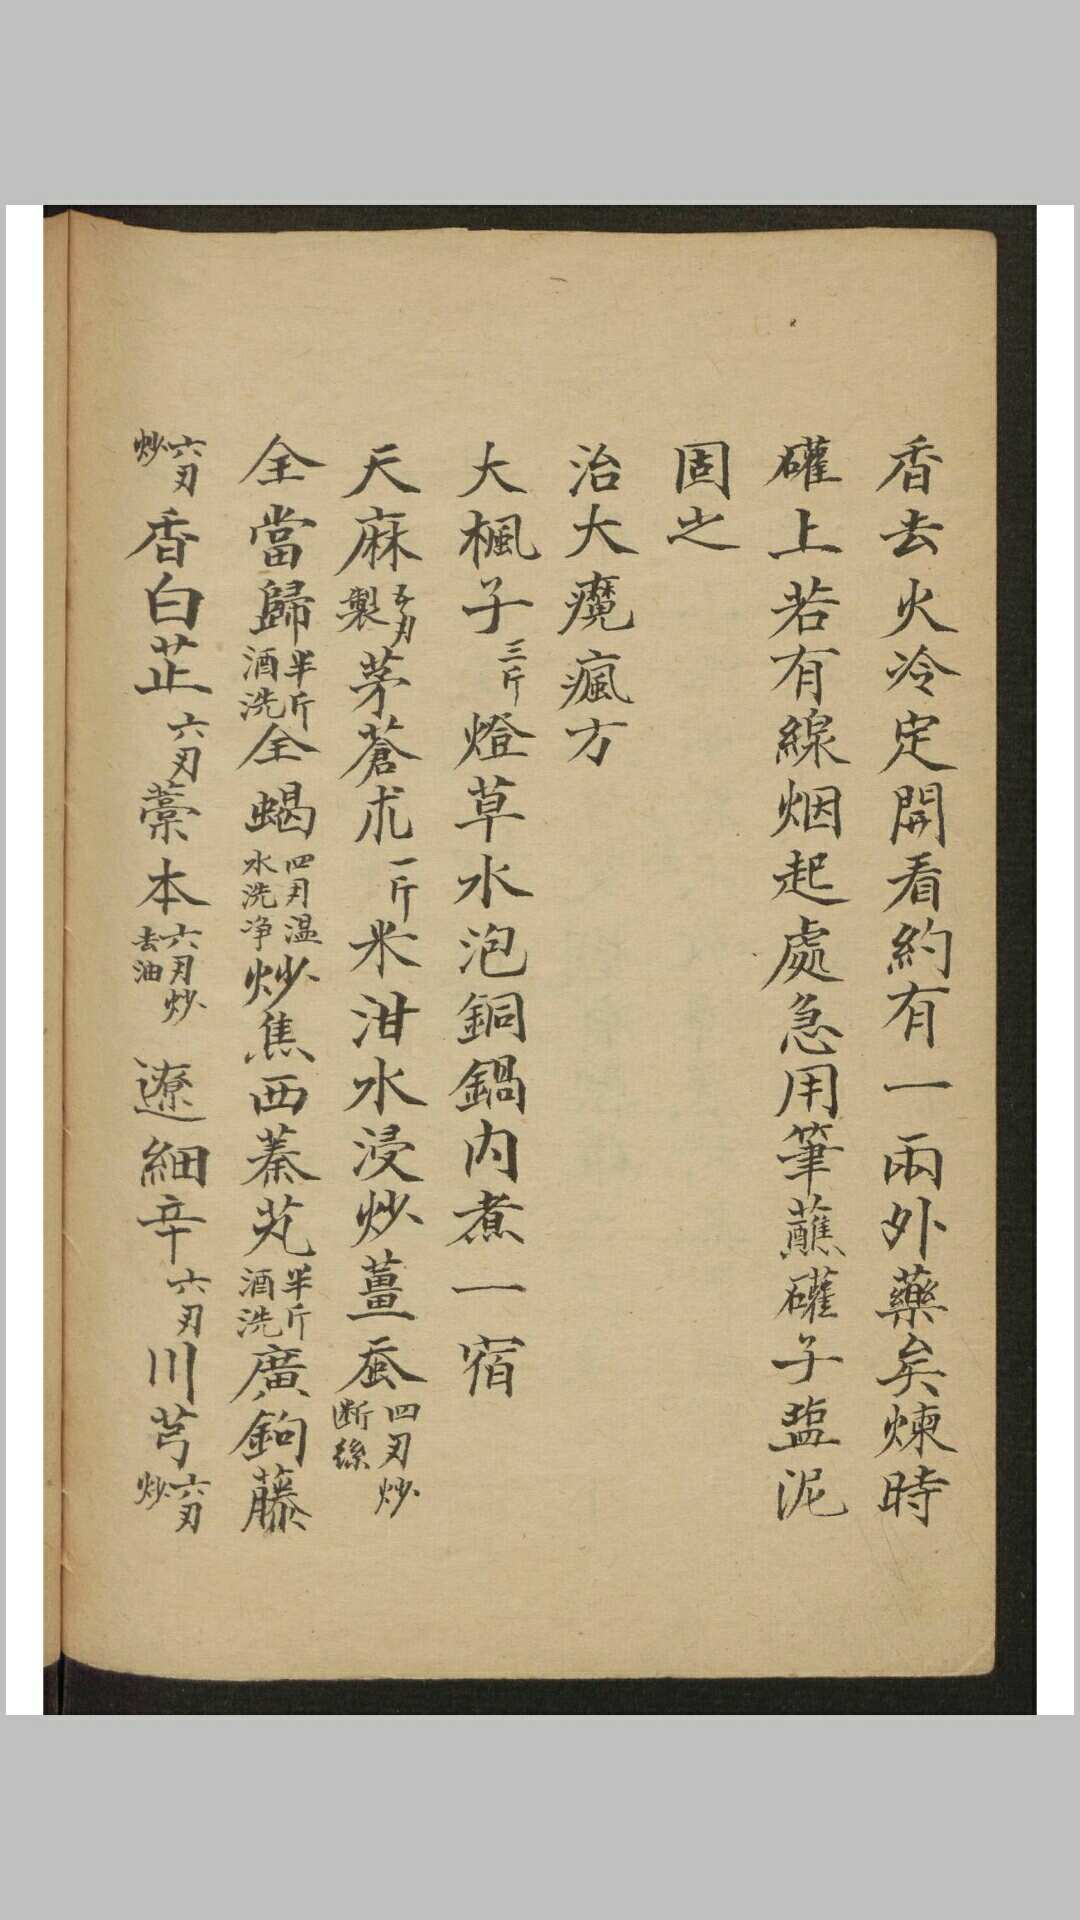 香去火冷定開看約有一兩外藥矣煉時
礶上若有線烟起處急用筆蘸礶子盐泥
固之
治大癘瘋方
大楓子三斤燈草水泡銅鍋内煮一宿
天麻五刃製茅蒼朮一斤米泔水浸炒薑蚕四刃炒断絲
全當歸半斤酒洗全蝎四刃温水洗净炒焦西蓁艽半斤酒洗廣鉤藤
六刃炒香白芷六刃藁本六刃炒去油遼細辛六刃川芎六刃炒